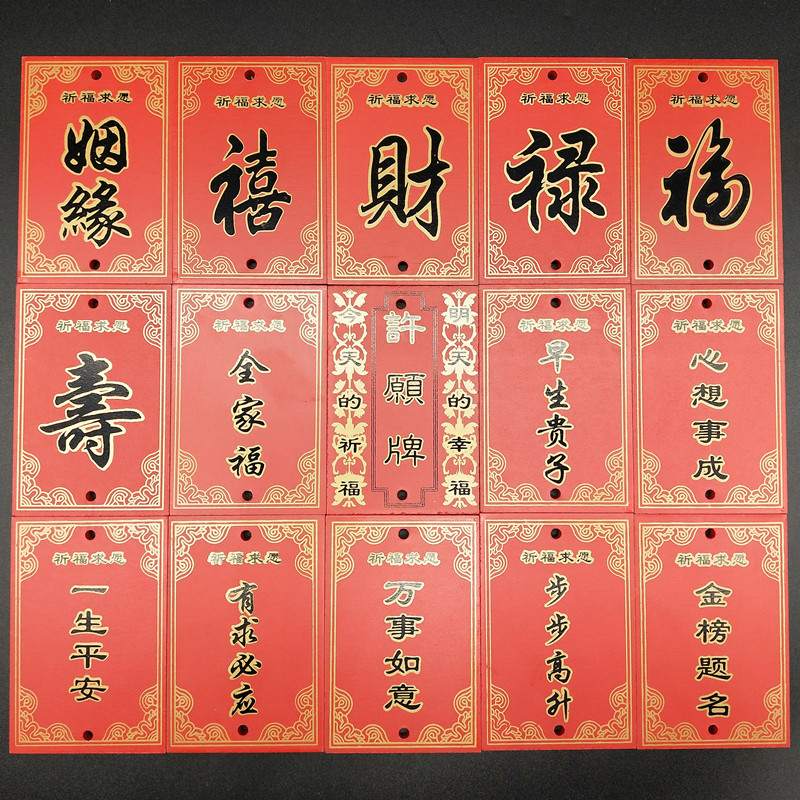 祈福求愿
姻緣
祈福求愿
禧
祈福求愿
財
祈福求愿
禄
祈福求愿
福
祈福求愿
壽
祈福求愿
全家福
今天的祈福
許願牌
明天的幸福
祈福求愿
早生贵子
祈福求愿
心想事成
祈福求愿
一生平安
祈福求愿
有求必应
祈福求愿
万事如意
祈福求愿
步步高升
祈福求愿
金榜题名